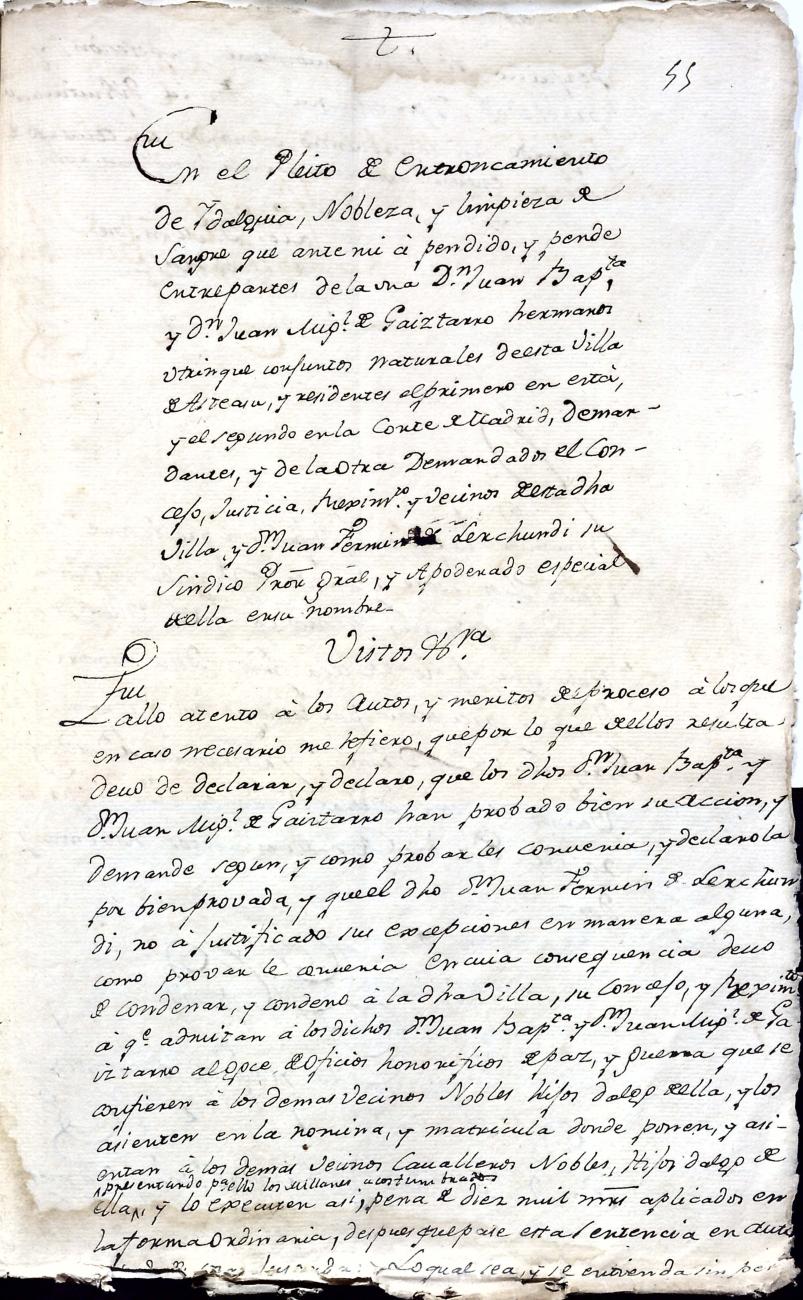 55
En el Pleito de Entroncamiento
de Ydalguia, Nobleza, y limpieza de
Sangre que ante mi à pendido, y pende
entrepartes de la una Dn. Juan Bapta.
y Dn. Juan Migl. de Gaiztarro hermanos
utrinque conjuntos naturales de esta Villa
de Asteasu, y residentes el primero en esta,
y el segundo en la Corte de Madrid, deman-
dantes, y de la otra Demandados el Con-
cejo, Justicia, Reximto. y vecinos de esta dha
Villa, y Dn. Juan Fermin de Lerchundi su
Sindico Pror. Gral, y Apoderado especial
de ella en su nombre
Vistos &ra.
Fallo atento à los autos, y meritos de proceso à los que
en caso necesario me refiero, que por lo que de ellos resulta
devo de declarar, y declaro, que los dhos Dn. Juan Bapta. y
Dn. Juan Migl. de Gaiztarro han probado bien su accion, y
demanda segun, y como probarles convenia, y declarola
por bien provada, y que el dho Dn. Juan Fermin de Lerchun
di, no à justificado sus excepciones en manera alguna,
como provar le convenia en cuia consequencia devo
de condenar, y condeno à la dha Villa, su Concejo, y Reximto.
à qe. admitan à los dichos Dn. Juan Bapta. y Dn. Juan Migl. de Ga
iztarro al goce de oficios honorificos de paz, y guerra que se
confieren à los demas vecinos Nobles hijos dalgo de ella, y los
asienten en la nomina, y matricula donde ponen, y asi-
entan à los demàs vecinos Cavalleros Nobles, Hijos dalgo de
presentando pa. ello los millares acostumbrados
ella, y lo executen asi, pena de diez mil mrs aplicados en
la forma ordinaria, despues que pase esta sentencia en auto
Lo qual sea, y se entienda sin per